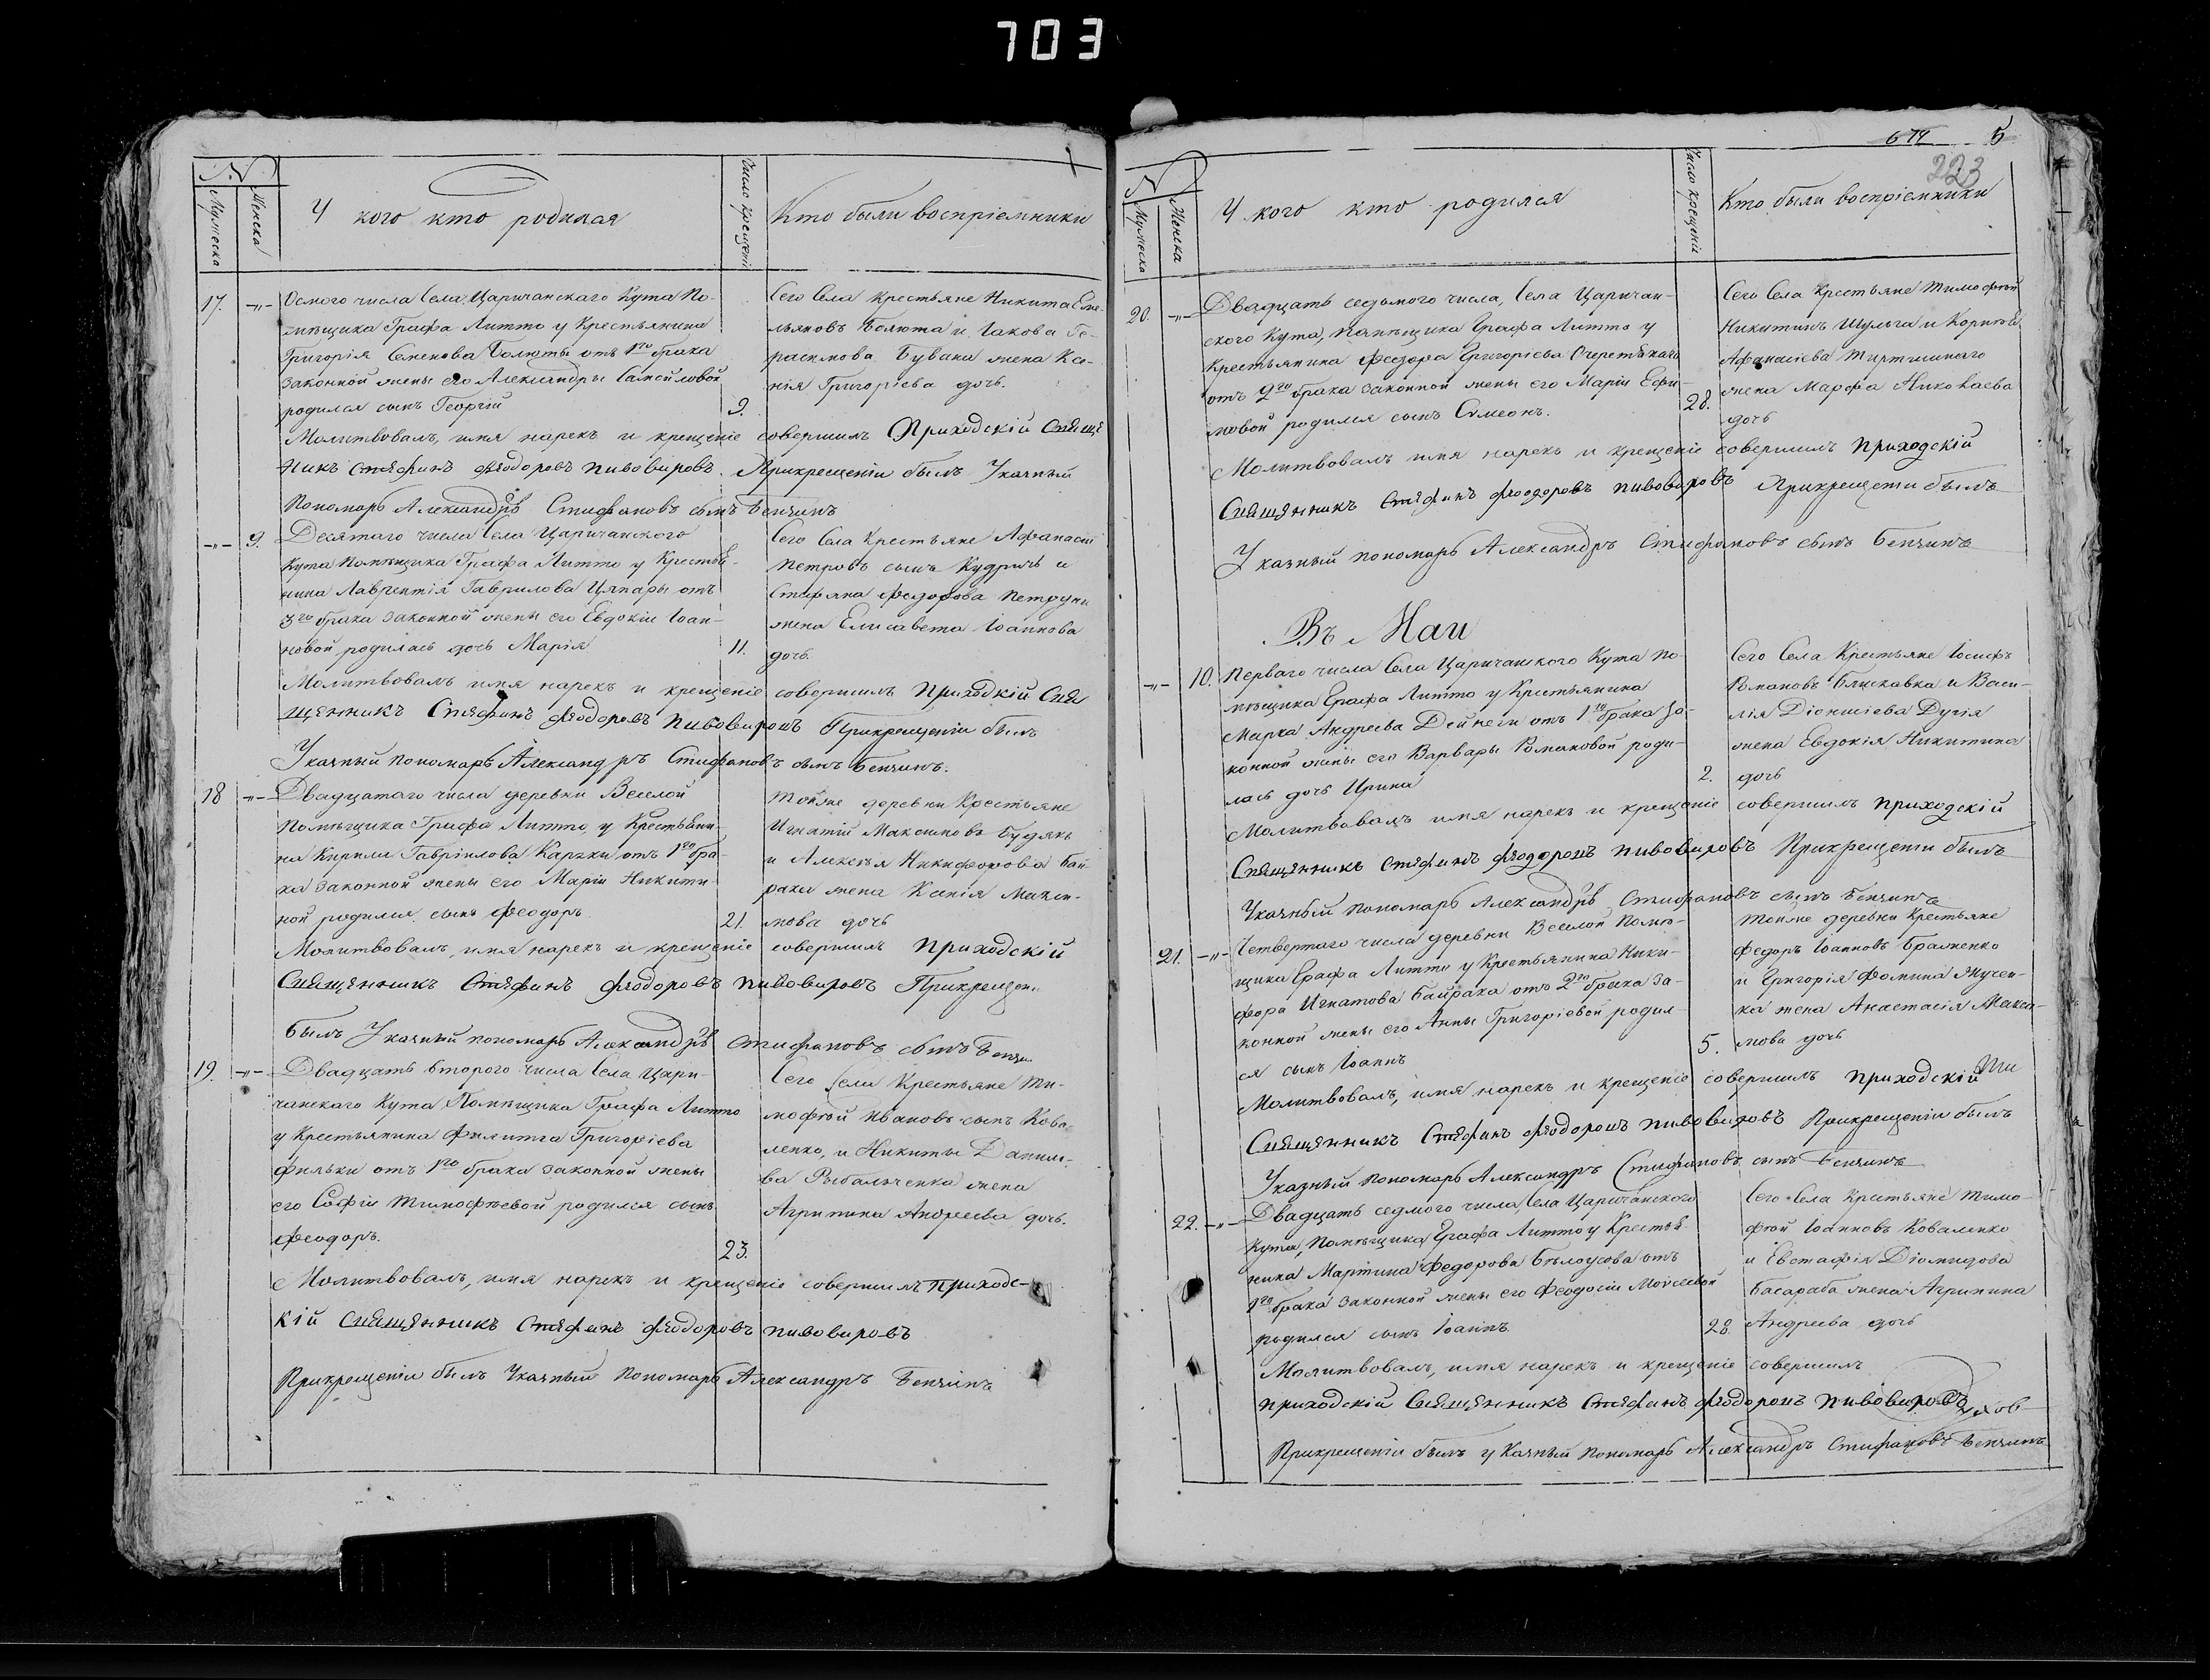 703
№
Мужеска
Женска
У кого кто родился
Число крещенія
Кто были воспріемники
17. -"- Осмого числа Села Царичанскаго Кута По-
мѣщика Графа Литто у Крестьянина
Григорія Семенова Болюты отъ 1го брака
законной жены его Александры Самойловой
родился сынъ Георгій
9.
Сего Села Крестьяне Никита Еме-
льяновъ Болюта и Іакова Ге-
расимова Бувана жена Ксе-
нія Григорієва дочь.
Молитвовалъ, имя нарекъ и крещеніе совершилъ Приходскій Свяще
никъ Стефанъ Феодоровъ Пивоваровъ. Прикрещеніи былъ Указный
Пономарь Александръ Стефановъ сынъ Бензинъ
-"- 9. Десятаго числа Села Царичанского
Кута Помѣщика Графа Литто у Крестья-
нина Лаврентія Гаврилова Цяпары отъ
3го брака законной жены его Евдокіи Іоан-
новой родилась дочь Марія
11.
Сего Села Крестьяне Афанасій
Петровъ сынъ Кудричъ и
Стефана Федорова Петруни
жена Елисавета Іоаннова
дочь.
Молитвовалъ имя нарекъ и крещеніе совершилъ Приходкій Свя
щенникъ Стефанъ Феодоровъ Пивоваровъ Прикрещеніи былъ
Указный пономарь Александръ Стефановъ сынъ Бензинъ.
18 -"- Двадцатаго числа деревни Веселой
Помѣщика Графа Литто, у Крестьяни-
на Кирила Гавріилова Каржи отъ 1го бра-
ка законной жены его Маріи Никити-
ной родился сынъ Феодоръ.
21.
Тойже деревни Крестьяне
Игнатій Максимовъ Будякъ
и Алексѣя Никифорова Бай
рака жена Ксенія Макси-
мова дочь
Молитвовалъ, имя нарекъ и крещеніе совершилъ приходскій
Священникъ Стефанъ Феодоровъ Пивоваровъ Прикрещен.
былъ Указный пономарь Александръ Стефановъ сынъ Бензи.
19. -"- Двадцать второго числа Села Цари-
чанскаго Кута Помѣщика Графа Литто
у Крестьянина Филиппа Григоріева
Фильки отъ 1го брака законной жены
его Софіи Тимофѣевой родился сынъ
Феодоръ.
23.
Сего Села Крестьяне Ти-
мофѣй Ивановъ сынъ Кова-
ленко, и Никиты Данило-
ва Рыбальченка жена
Агрипина Андреева дочь.
Молитвовалъ, имя нарекъ и крещеніе совершилъ приходс-
кій Священникъ Стефанъ Феодоровъ Пивоваровъ
Прикрещеніи былъ Указный Пономарь Александръ Бензинъ
5
223
№
Мужеска
Женска
У кого кто родился
Число крещеніе
Кто были воспріемники
20. -"- Двадцать седьмого числа, Села Царичан-
ского Кута, помѣщика Графа Литто у
Крестьянина Федора Григорієва Очеретькаго
отъ 2го брака законной жены его Маріи Ефи-
мовой родился сынъ Симеонъ.
28.
Сего Села Крестьяне Тимофѣй
Никитинъ Шульга и Корнѣя
Афанасієва Тиртишнаго
жена Марфа Николаева
дочь
Молитвовалъ имя нарекъ и крещеніе совершилъ приходскій
Священникъ Стефанъ Феодоровъ Пивоваровъ Прикрещети былъ
Указный пономарь Александръ Стефановъ сынъ Бензинъ
Въ Маи
-"- 10. Перваго числа Села Царичанского Кута По-
мѣщика Графа Литто у Крестьянина
Марка Андреева Дейнеги отъ 1го брака за-
конной жены его Варвары Романовой роди-
лась дочь Ирина
2.
Сего Села Крестьяне Іосифъ
Романовъ Блискавка и Васи-
лія Діонисіева Дугія
жена Евдокія Никитина
дочь
Молитвовалъ имя нарекъ и крещеніе совершилъ приходскій
Священникъ Стефанъ Феодоровъ Пивоваровъ Прикрещети былъ
Указный пономарь Александръ Стефановъ сынъ Бензинъ
21. -"- Четвертаго числа деревни Веселой Помѣ-
щика Графа Литто у Крестьянина Ники-
фора Игнатова Байрака отъ 2го брака за-
конной жены его Анны Григоріевой родил-
ся сынъ Іоаннъ
5.
Тойже деревни Крестьяне
Федоръ Іоанновъ Браженко
и Григорія Фомина Жучен-
ка жена Анастасія Макси-
мова дочь
Молитвовалъ, имя нарекъ и крещеніе совершилъ приходскій
Священникъ Стефанъ Феодоровъ Пивоваровъ Прикрещеніи былъ
Указный пономарь Александръ Стефановъ сынъ Бензинъ
22. -"- Двадцать седмого числа, Села Царичанского
Кута, Помѣщика Графа Литто у Крестья-
нина Мартина Федорова Бѣлоусова отъ
1го брака законной жены его Феодосіи Моисеевой
родился сынъ Іоаннъ.
28.
Сего Села Крестьяне Тимо-
фѣй Іоанновъ Коваленко
и Евстафія Діомидова
Басараба жена Агрипина
Андреева дочь
Молитвовалъ, имя нарекъ и крещеніе совершилъ
приходскій Священникъ Стефанъ Феодоровъ Пивоваровъ
Прикрещеніи былъ указный пономарь Александръ Стефановъ Бензинъ